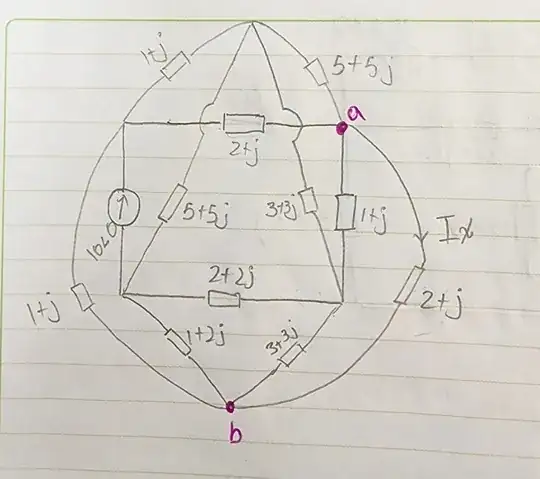 1+j
5+5j
a
2+j
10∠0
5+5j
3+3j
1+j
Ix
2+2j
1+j
2+j
1+2j
3+3j
b